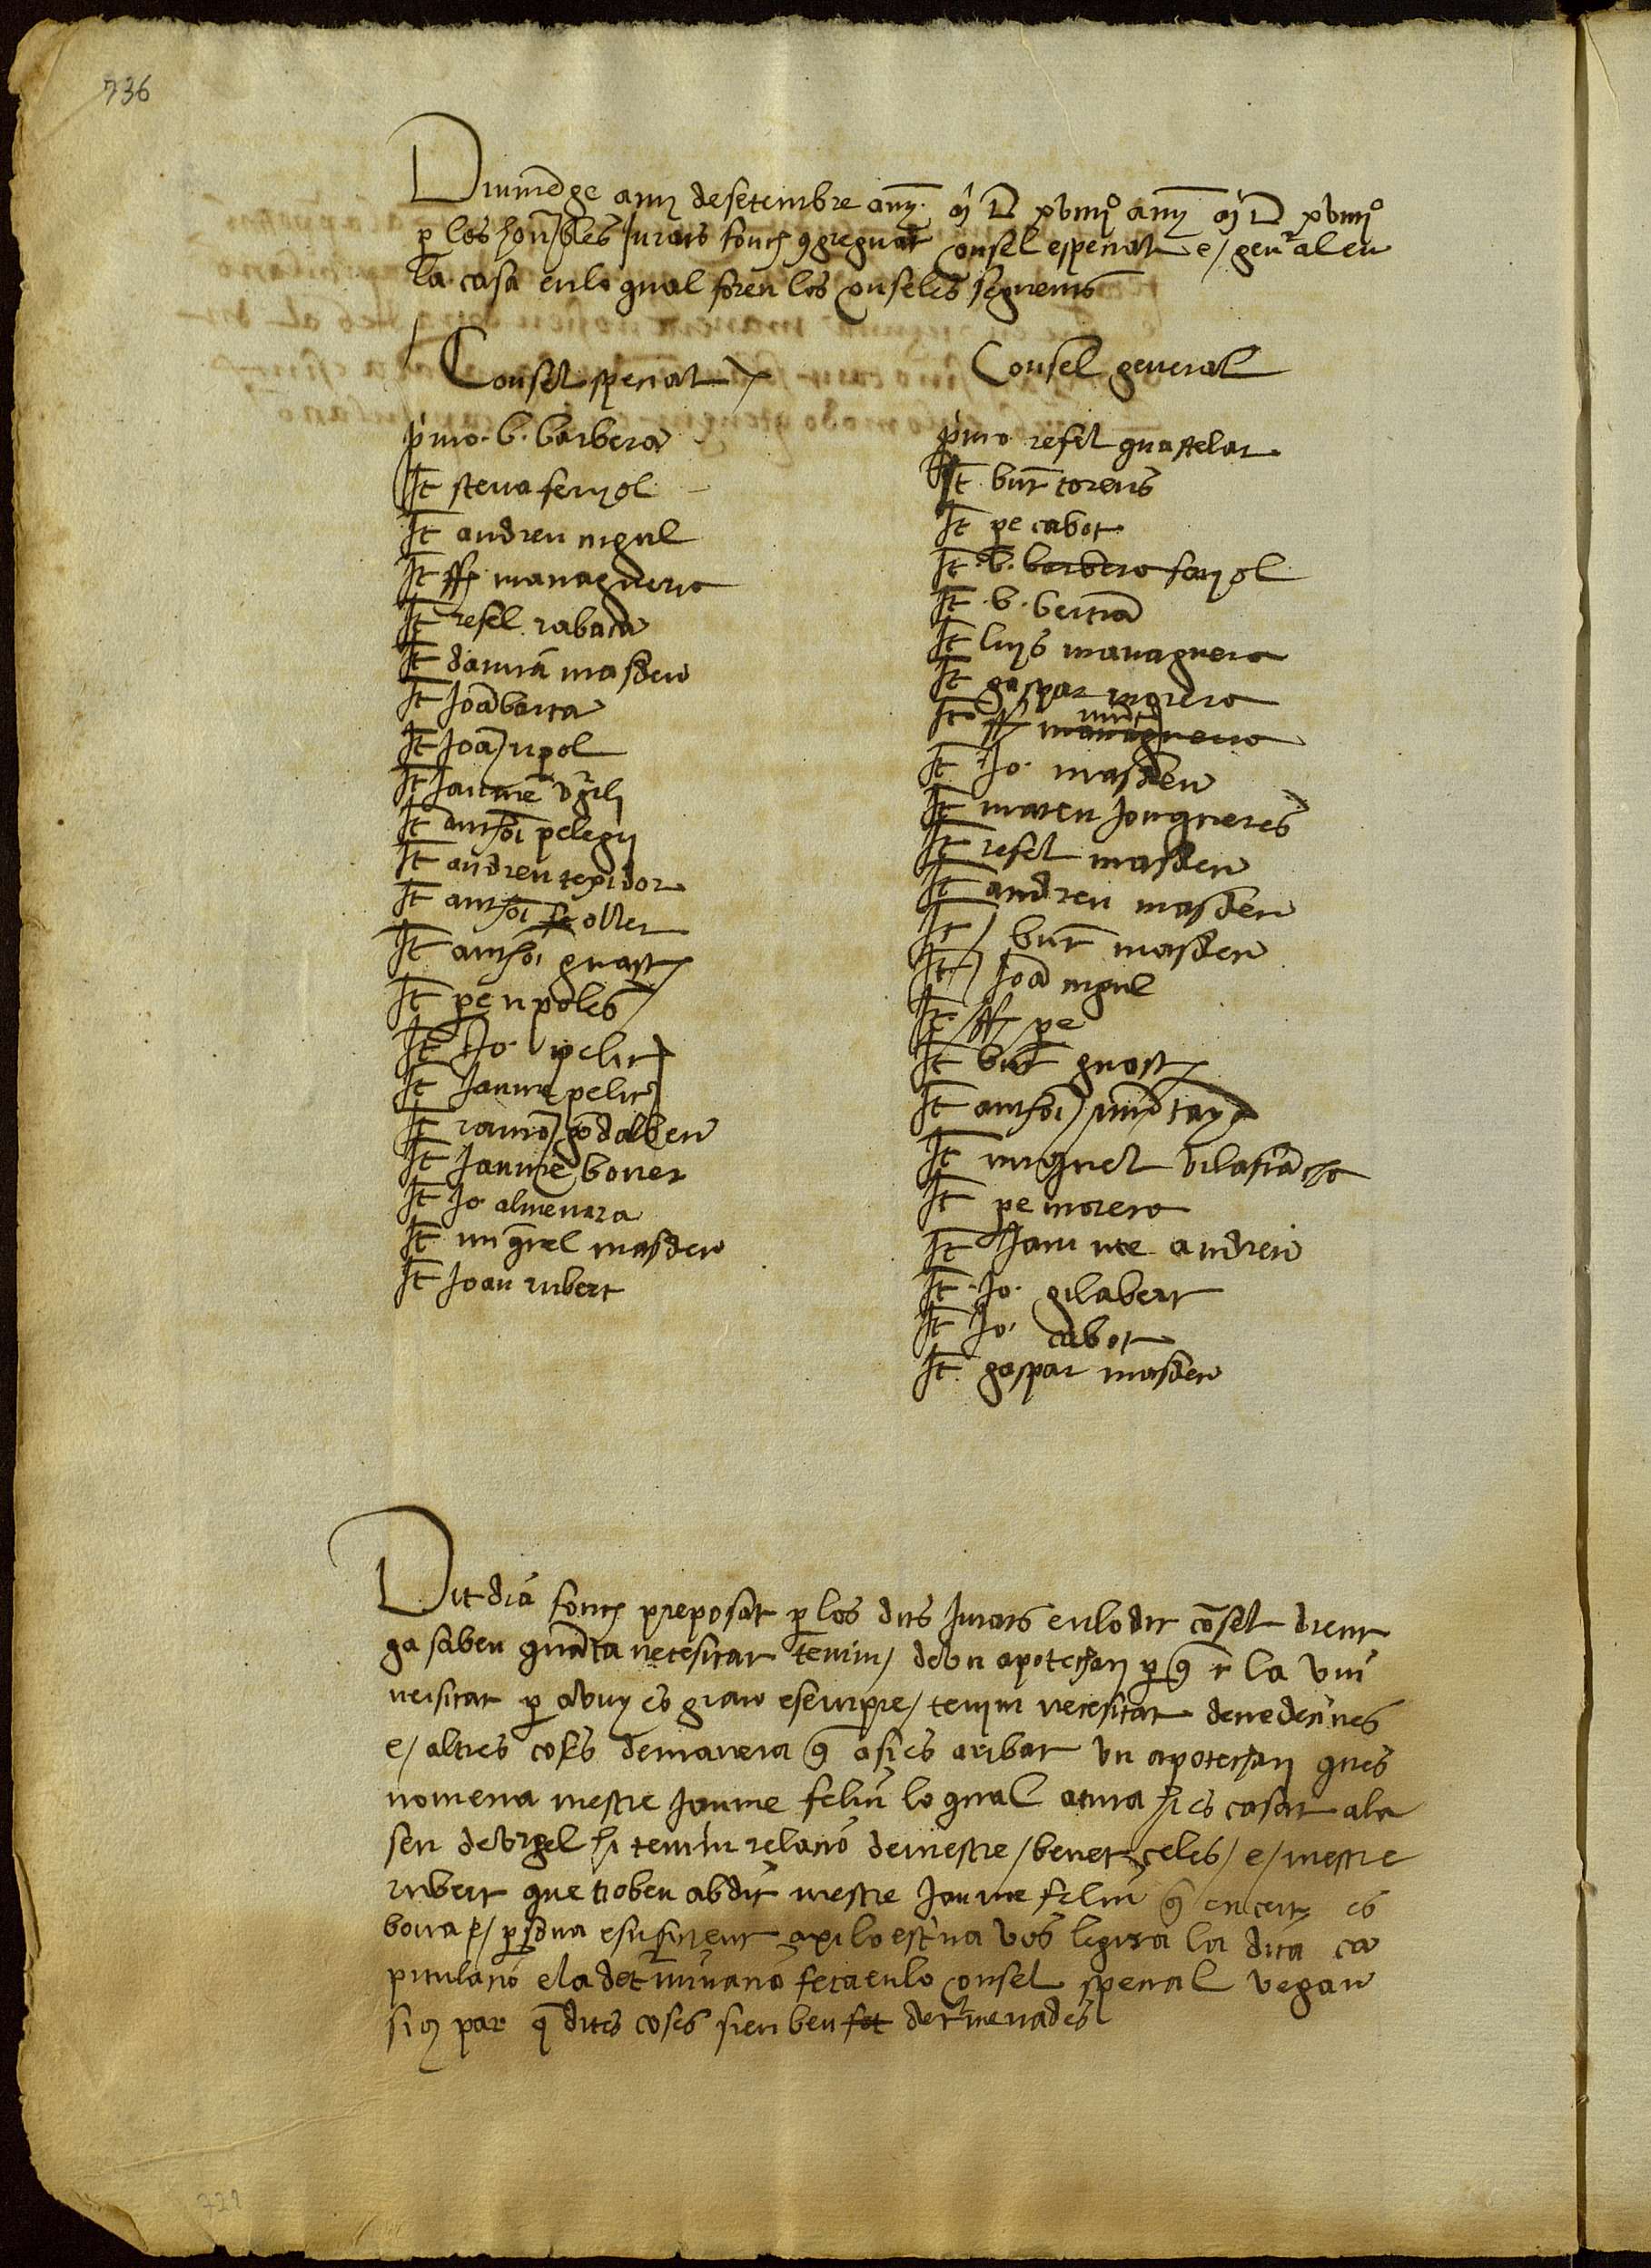 736
Diumēge a mj de setembre any mj D xviiijº any mj D xviiijº
p los honbles Jurats fonch 9greguat consel especiat e/ genal en
la casa en lo qual foren los conselés seguents
Consel special
pmo. b. barbera
It steva ferijol
It andreu migul
It ff managuerra
It refel rabaca
It damiā masdeu
It Joā barca
It Joā ripol
It Jaume vgili
It anthoi pelegri
It andreu texidor
It anthoi fe oller
It anthoi guasch
It pe ripoles
It Jo. pelit
It Jaume pelit
It ramō godalbeu
It Jaume boner
It Jo almenara
It miquel masdeu
It Joan rubert
Consel general
pmo refel guastelar
It burt torens
It pe cabot
It b. barbera farijol
It b. bertrā
It luys managuera
It gaspar morera
It ff managuerra
It Jo. masdeu
It mateu Jonqueres
It refel masdeu
It andreu masdeu
It burt masdeu
It Joā migul
It ff pe
It burt guasch
It anthoi mūtayo
It miquel vilafrācha
It pe morera
It Jaume andreu
It Jo. gilabert
It Jo. cabot
It gaspar masdeu
Dit dia fonch preposat p los dits Jurats en lo dit cōsel dient
ja saben quāta necesitat tenim/ de vn apotechari p q la vni
versitat p avuy es gran e sempre/ tenim necesitat de medecines
e/ altres coses de manera q asi es aribat vn apotechari ques
nomena mestre Jaume feliu lo qual atura hi es casat a la
seu de vrgel hi tenim relacio de mestre/ benet celes/ e/ mestre
rubert que troben ab dit mestre Jaume feliu q en cert es
bona p/ psona e suficient axi lo estiua vos legira la dita ca
pitulacio e la detminacio feta en lo consel special vegan
sils par q dites coses sien ben fet detmenades
721